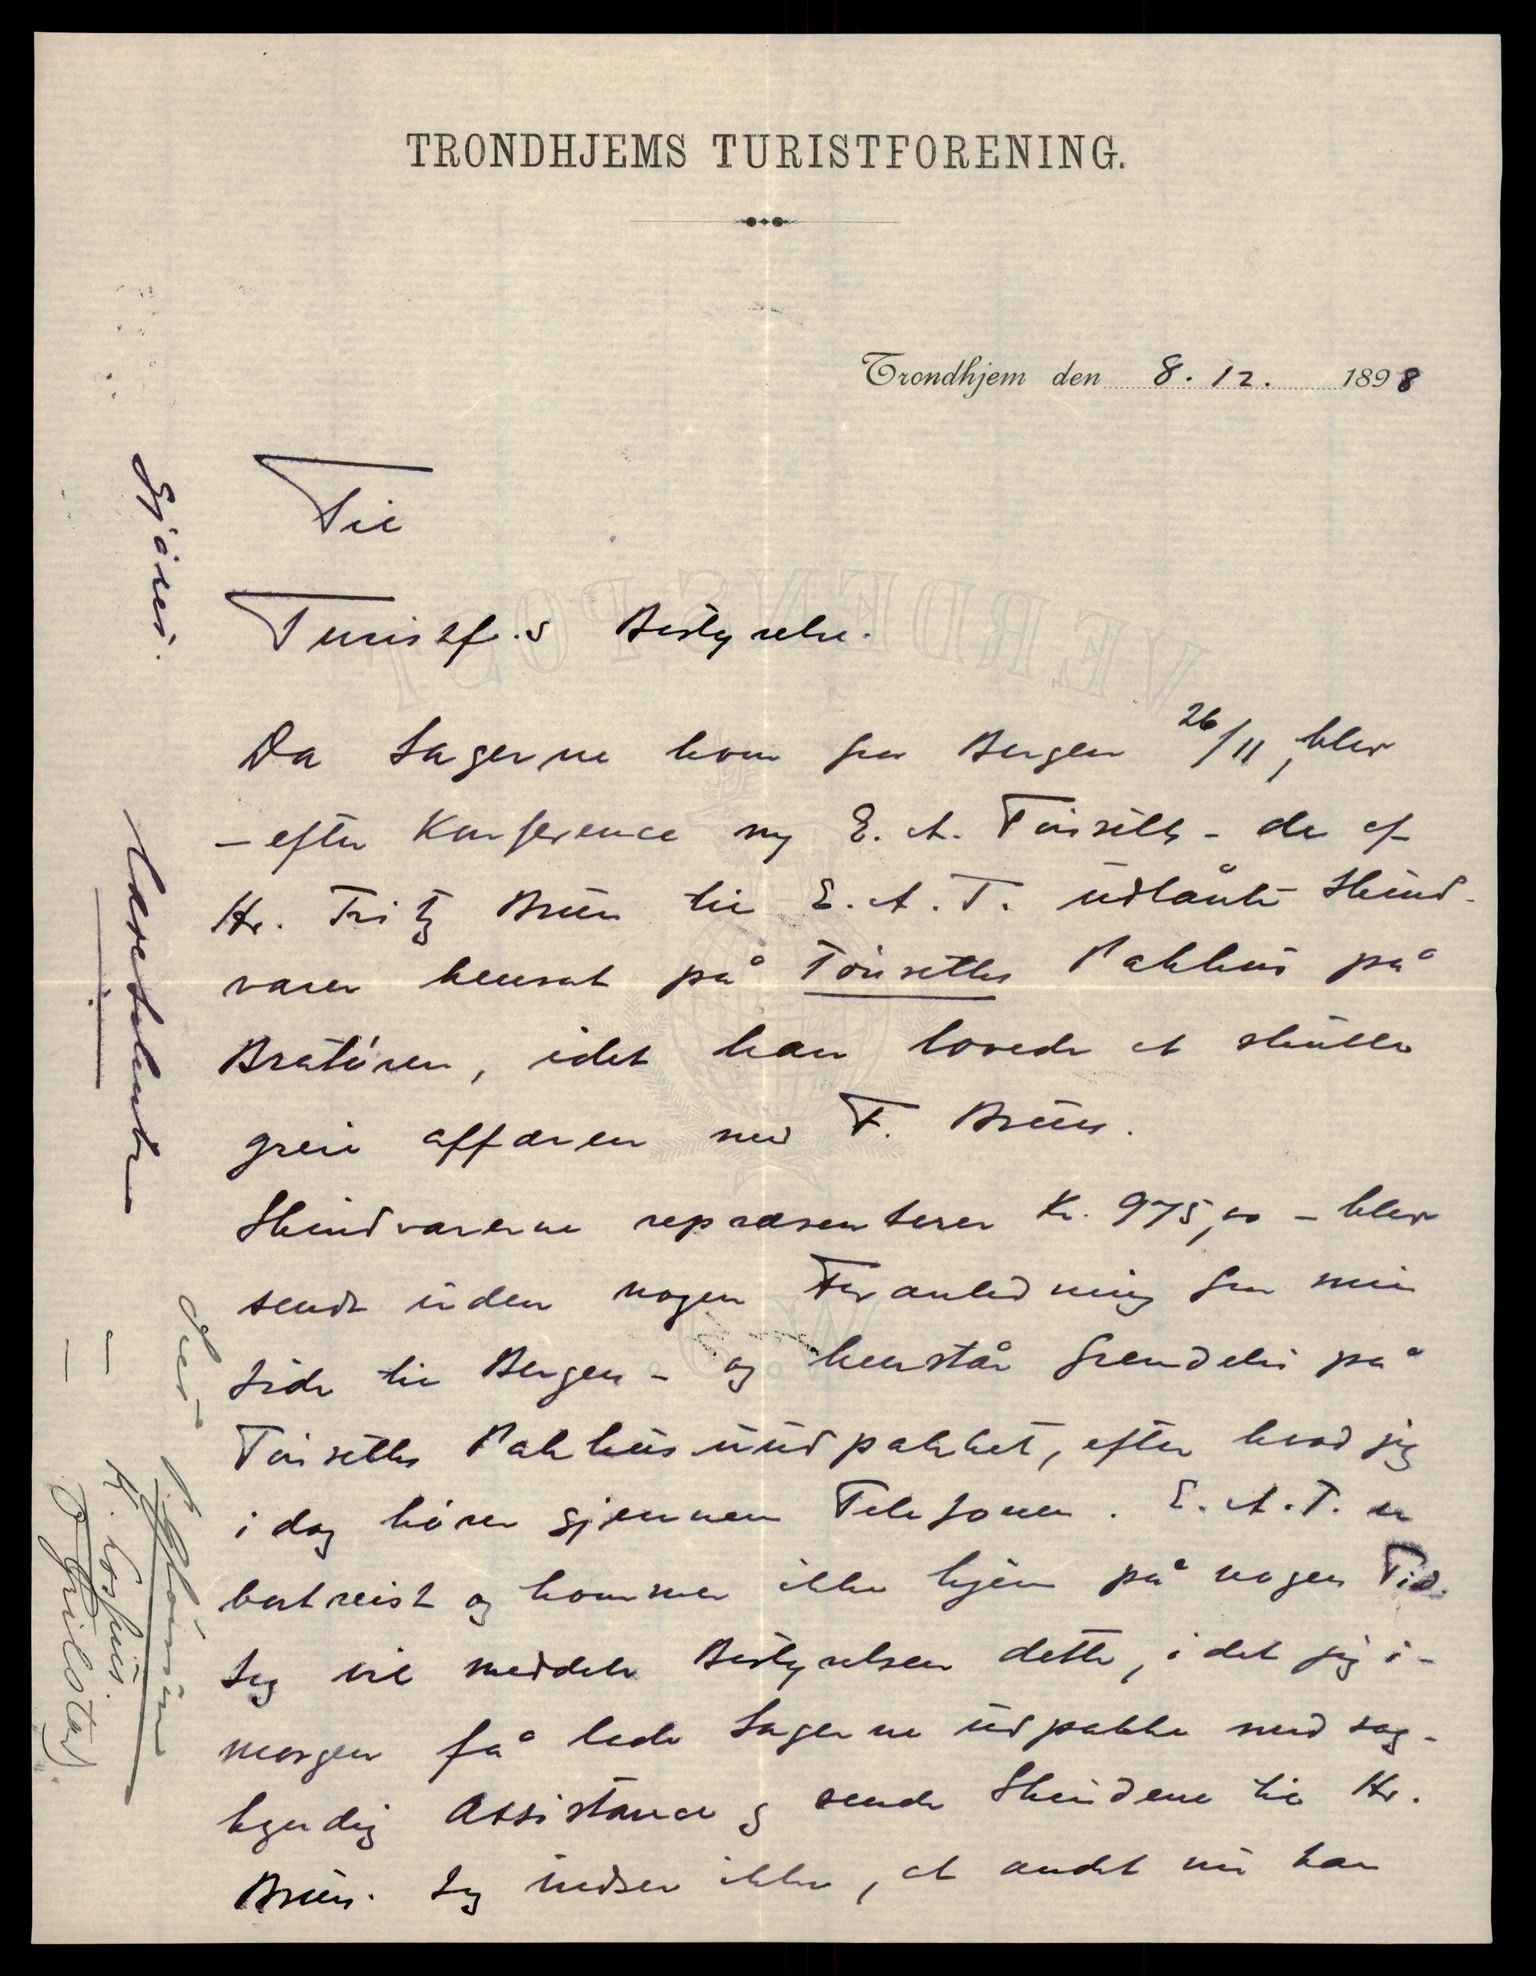 TRONDHJEMS TURISTFORENING.
Trondhjem den 8.12. 1898
Til
Turistf.s Bestyrelse.
Da Sagerne kom fra Bergen 26/11, blev
– efter Konference m E. A. Tönseth – de af
Hr. Fritz Bruun til E. A. T. udlånte Skind-
varer hensat på Tönseths Pakhus på
Bratören, idet han lovede at skulle
greie affæren med F. Bruun.
Skindvarerne repræsenterer Kr. 975,00 – blev
sendt uden nogen Foranledning fra min
Side til Bergen – og henstår fremdeles på
Tönseths Pakhus uudpakket, efter hvad jeg
i dag hörer gjennem Telefonen. E. A. T. er
bortreist og kommer ikke hjem på nogen Tid.
Jeg vil meddele Bestyrelsen dette, idet jeg i-
morgen få lade Sagerne udpakke med sag-
kyndig Assistance og sende Skindene til Hr.
Bruun. Jeg indser ikke, at andet nu kan
gjöres.
VERDENSPOST